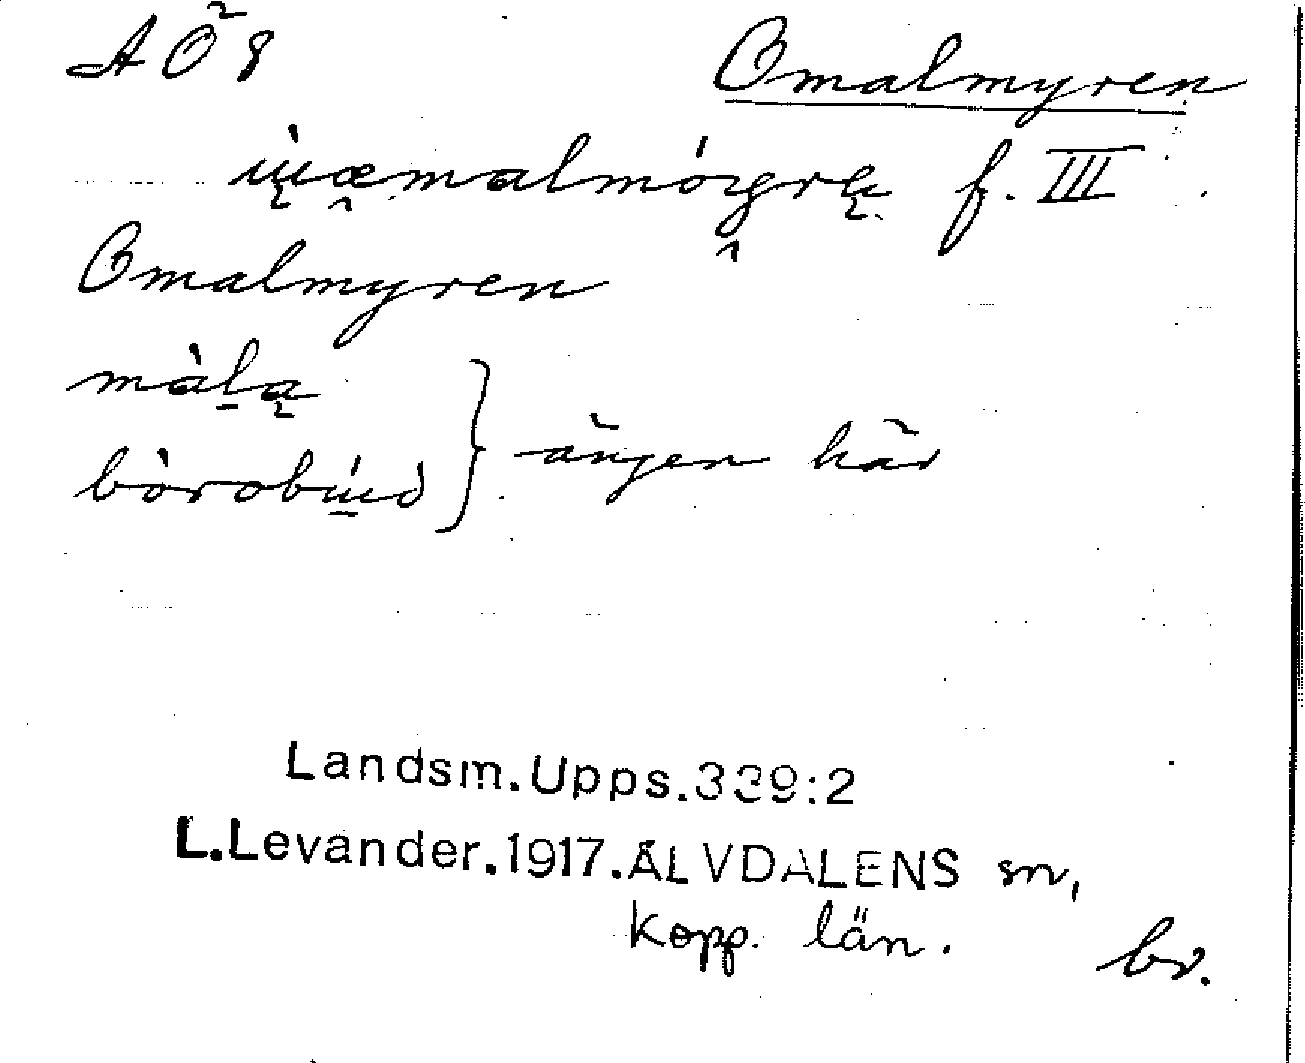 AÖ 8
Omalmyren
f. III
Omalmyren
màlą
bòrobųnò } ängen här
Landsm.Upps.339:2
L.Levander.1917.ÄLVDALENS sn,
Kopp. län.
bv.